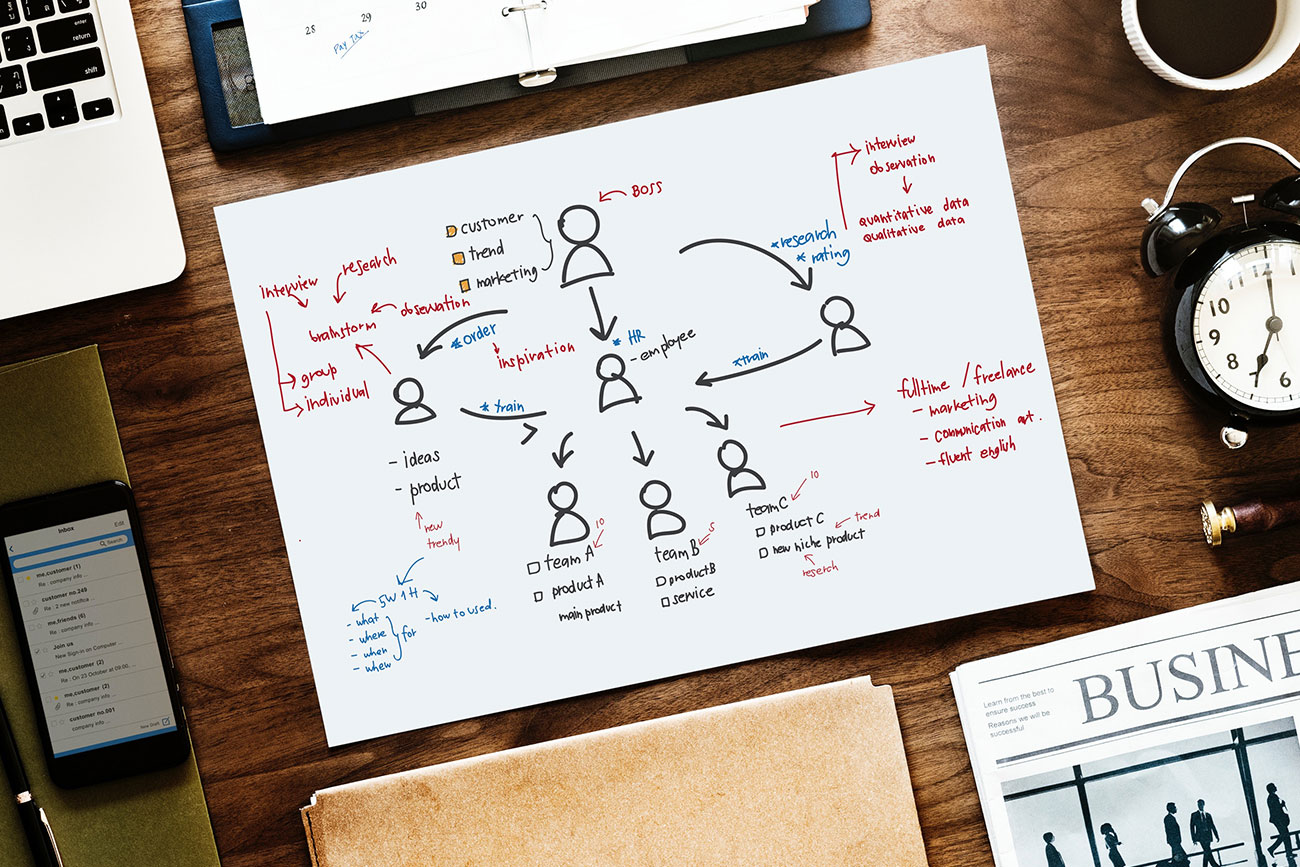 enter
return
shift
28
29
30
PAY TAX
BOSS
customer
trend
marketing
interview
observation
quantitative data
qualitative data
*research
* rating
interview
research
observation
brainstorm
group
individual
*order
inspiration
* HR
- employee
*train
* train
- ideas
- product
new
trendy
5W 1H
- what
- where
- when
- whew
for
- how to used.
fulltime / freelance
- marketing
- communication art.
- fluent english
10
team A
product A
main product
5
team B
product B
service
10
team C
product C
trend
new niche product
reserch
10
9
8
7
6
Inbox
Edit
Search
me,customer (1)
Re : company info ...
customer no.249
Re : 2 new notifica ...
me,friends (6)
Re : company info ...
Join us
New Sign-in on Computer ...
me,customer (2)
Re : On 23 October at 09:00, ...
me,customer (2)
Re : company info ...
customer no.001
company info ...
New Draft
Learn from the best to
ensure success
Reasons we will be
successful
BUSINE